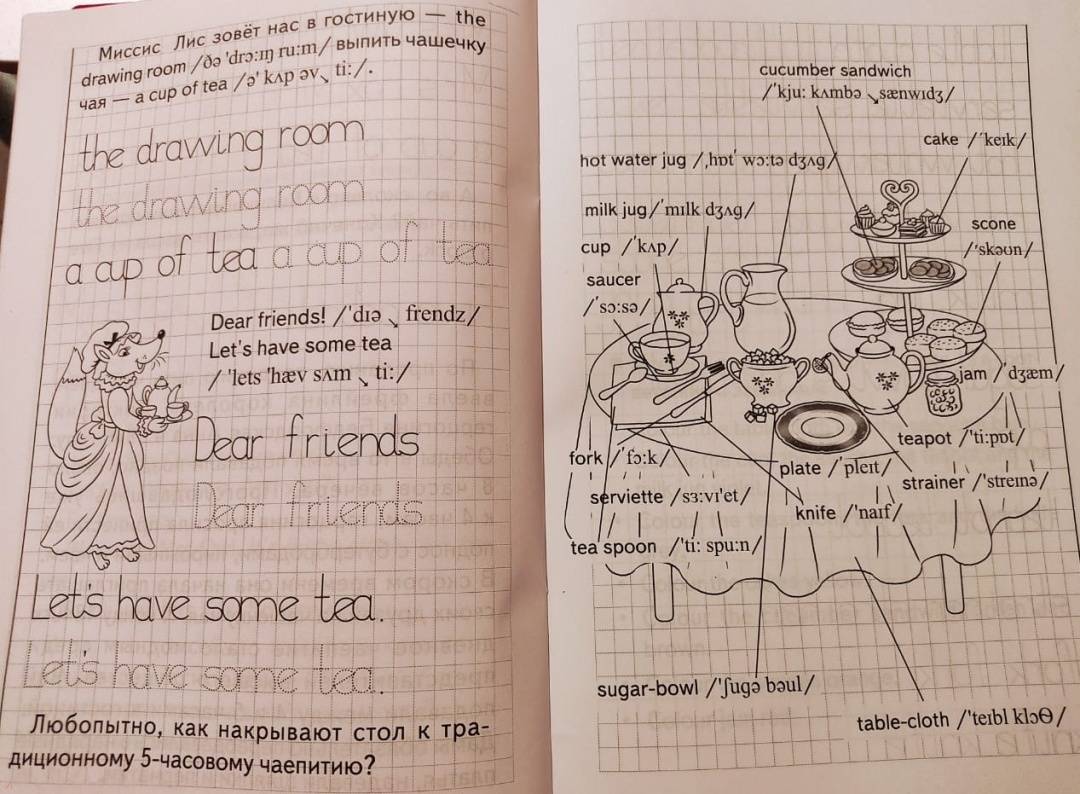 Миссис Лис зовёт нас в гостиную — the
drawing room /ðə 'drɔ:ɪŋ ru:m/ выпить чашечку
чая — a cup of tea /ə' kʌp əv↘ ti:/.
the drawing room
the drawing room
a cup of tea a cup of tea
Dear friends! /'dɪə ↘ frendz/
Let's have some tea
/ 'lets 'hæv sʌm ↘ ti:/
Dear friends
Dear friends
Let's have some tea.
Let's have some tea.
Любопытно, как накрывают стол к тра-
диционному 5-часовому чаепитию?
cucumber sandwich
/'kju: kʌmbə ↘sænwɪdʒ/
cake /'keɪk/
hot water jug /ˌhɒt' wɔ:tə dʒʌg/
milk jug/'mɪlk dʒʌg/
cup /'kʌp/
scone
/'skəʊn/
saucer
/'sɔ:sə/
jam /'dʒæm/
teapot /'ti:pɒt/
fork /'fɔ:k/
plate /'pleɪt/
strainer /'streɪnə/
serviette /sɜ:vɪ'et/
knife /'naɪf/
tea spoon /'ti: spu:n/
sugar-bowl /'ʃugə bəul/
table-cloth /'teɪbl klɔΘ/